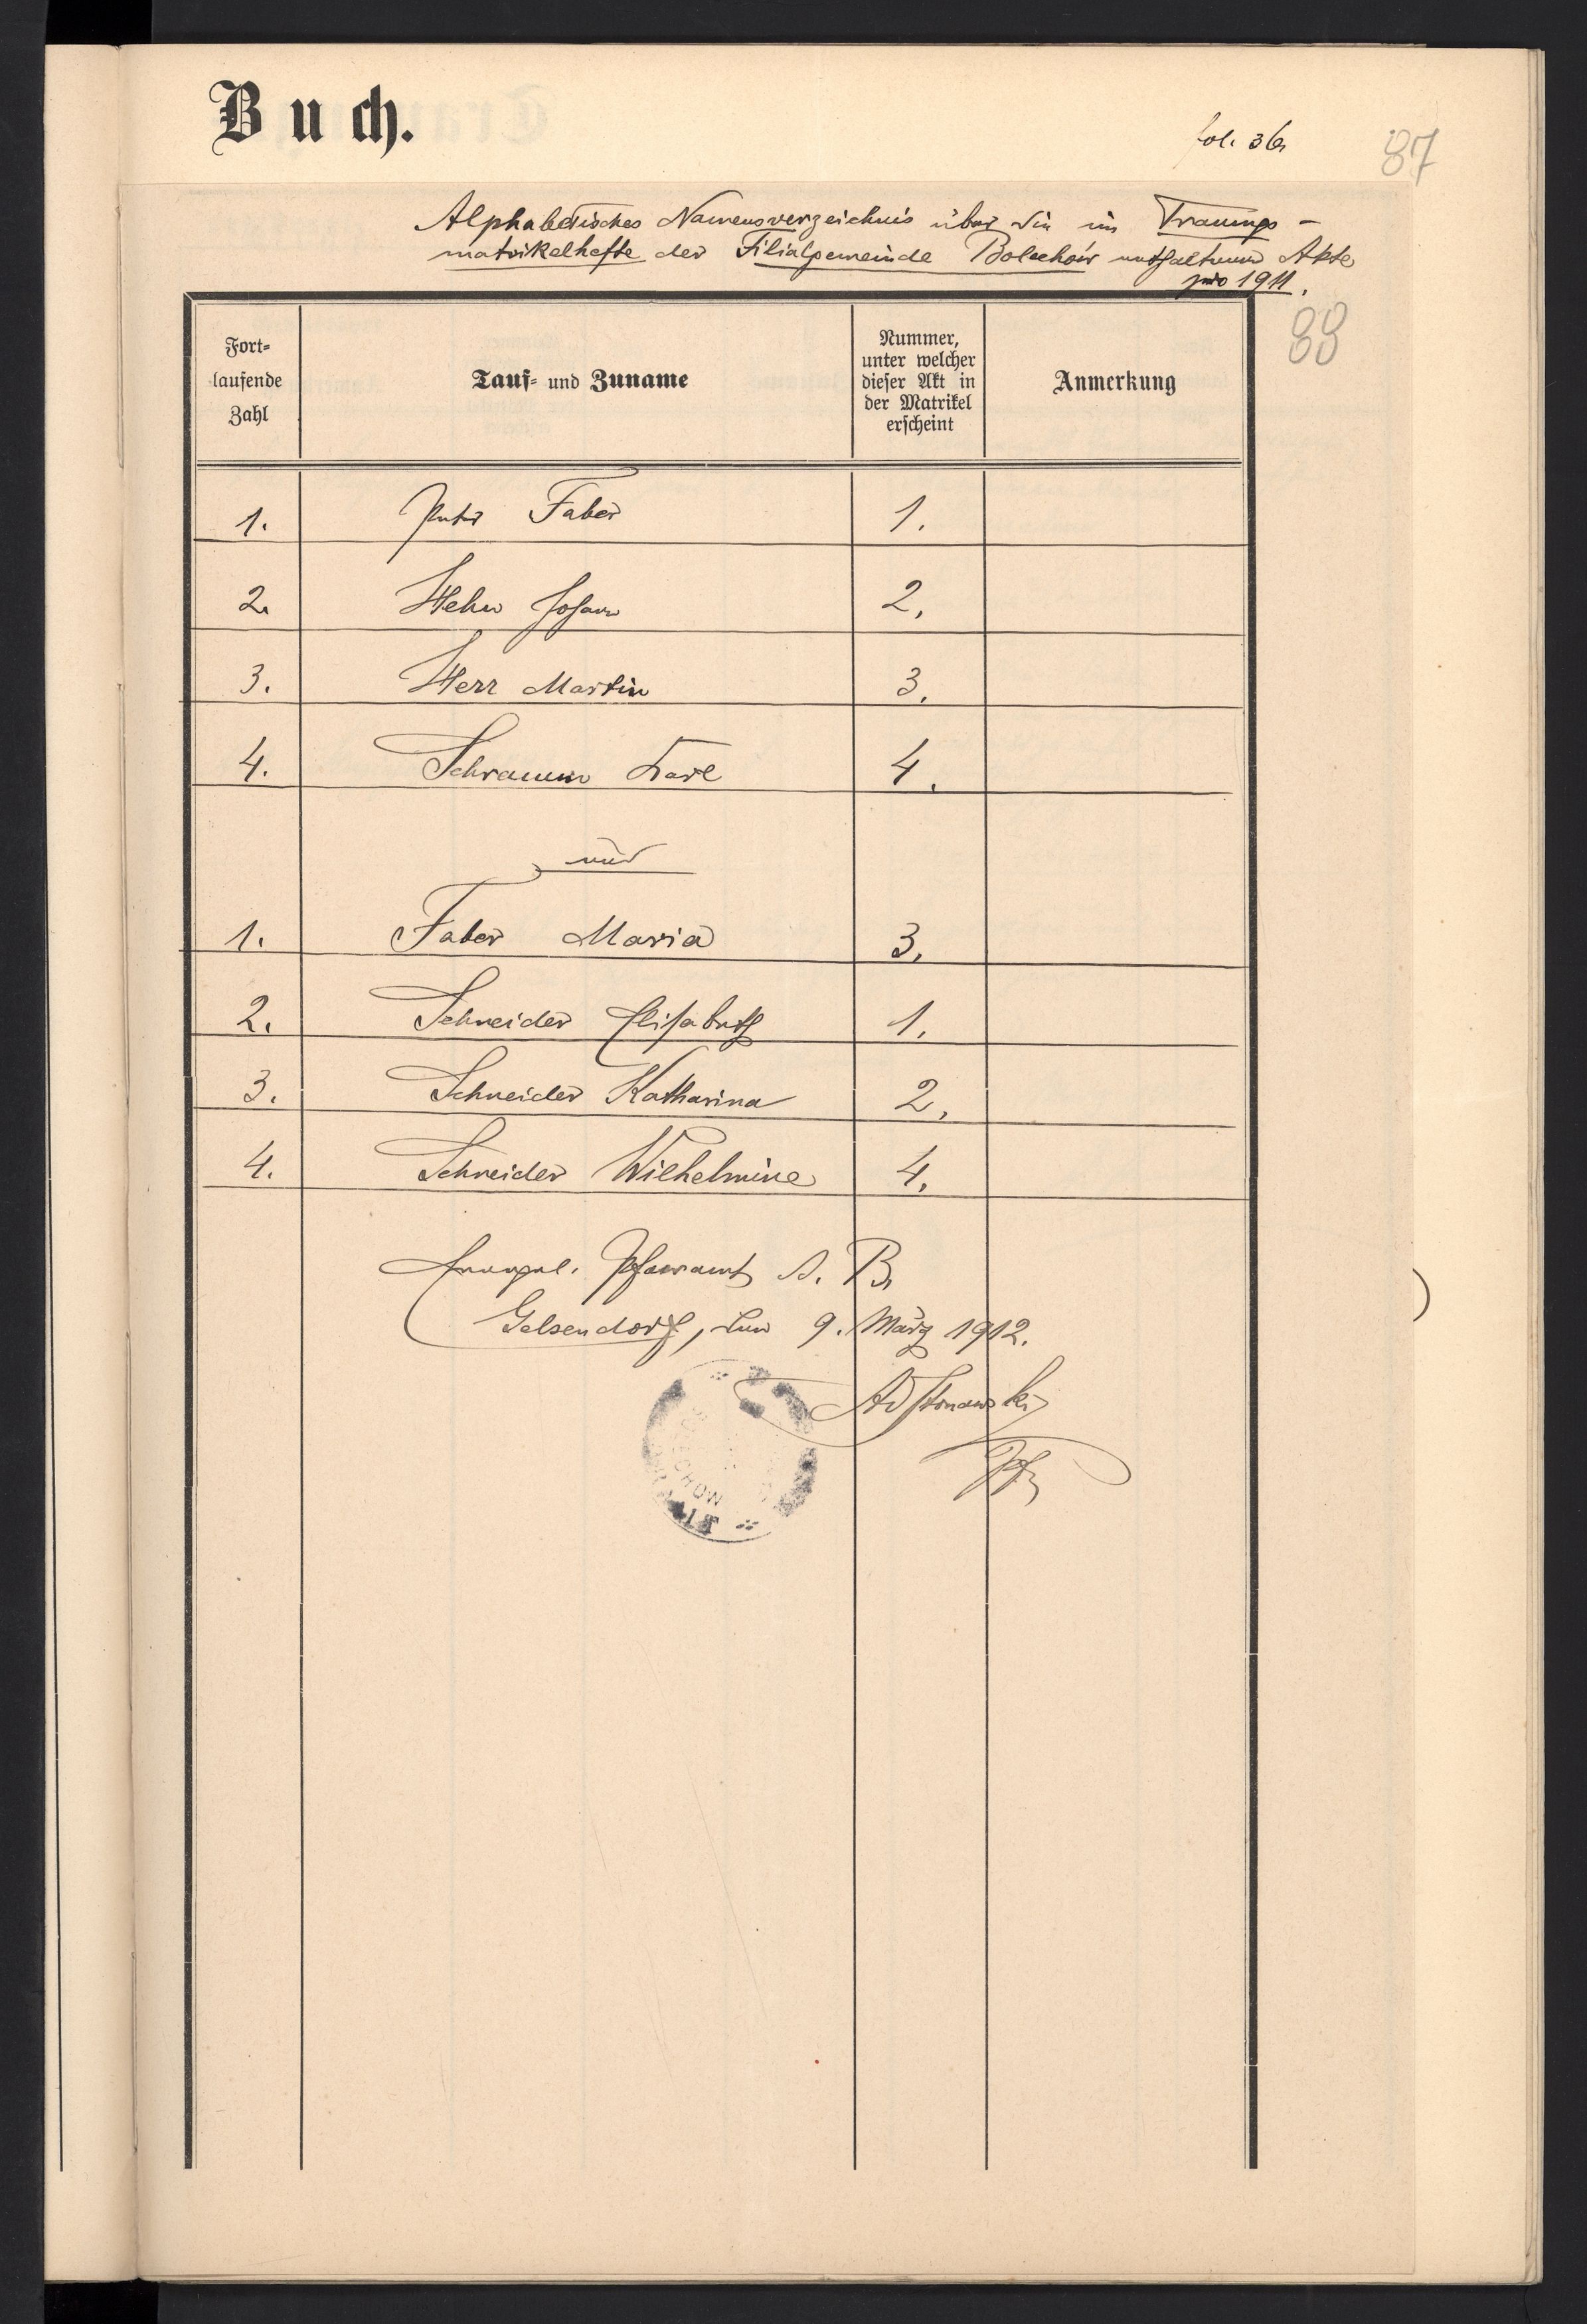 Buch.
fol. 36
87
Alphabetisches Namensverzeichnis über die im Trauungs-
matrikelhefte der Filialgemeinde Bolechów enthaltenen Akte
pro 1911.
88
Fort-
laufende
Zahl
Tauf- und Zuname
Nummer,
unter welcher
dieser Akt in
der Matrikel
erscheint
Anmerkung
1. Peter Faber 1.
2. Hehn Johann 2.
3. Herr Martin 3.
4. Schramm Karl 4.
und
1. Faber Maria 3.
2. Schneider Elisabeth 1.
3. Schneider Katharina 2.
4. Schneider Wilhelmine 4.
Evangel. Pfarramt A. B.
Gelsendorf, den 9. März 1912.
Pfr